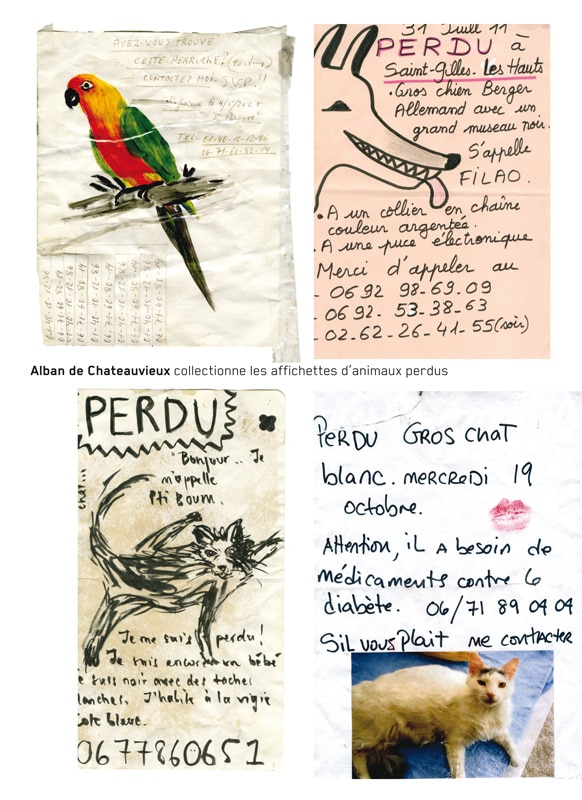 AVEZ-VOUS TROUVÉ
CETTE PERRUCHE?
CONTACTEZ MOI S.V.P.!!
TEL: 01-40-12-12-86
06-71-60-82-14
31 Juill 11
PERDU à
Saint-Gilles. les Hauts
. Gros chien Berger
Allemand avec un
grand museau noir.
S'appelle
FILAO.
. A un collier en chaîne
couleur argentée.
. A une puce électronique
Merci d'appeler au
- 06 92 98-69.09
- 06 92. 53.38-63
- 02-62-26-41-55 (soir)
Alban de Chateauvieux collectionne les affichettes d'animaux perdus
PERDU
"Bonjour.. Je
m'appelle
Pti Boum.
chat...
Je me suis perdu!
Je suis encore un bébé
e suis noir avec des taches
lanches. J'habite à la vigie
ote blave.
0677860651
PERDU GROS CHAT
blanc. MERCREDI 19
octobre.
Attention, iL A besoin de
médicaments contre le
diabète. 06/71 89 04 04
SiL vous Plait me contacter